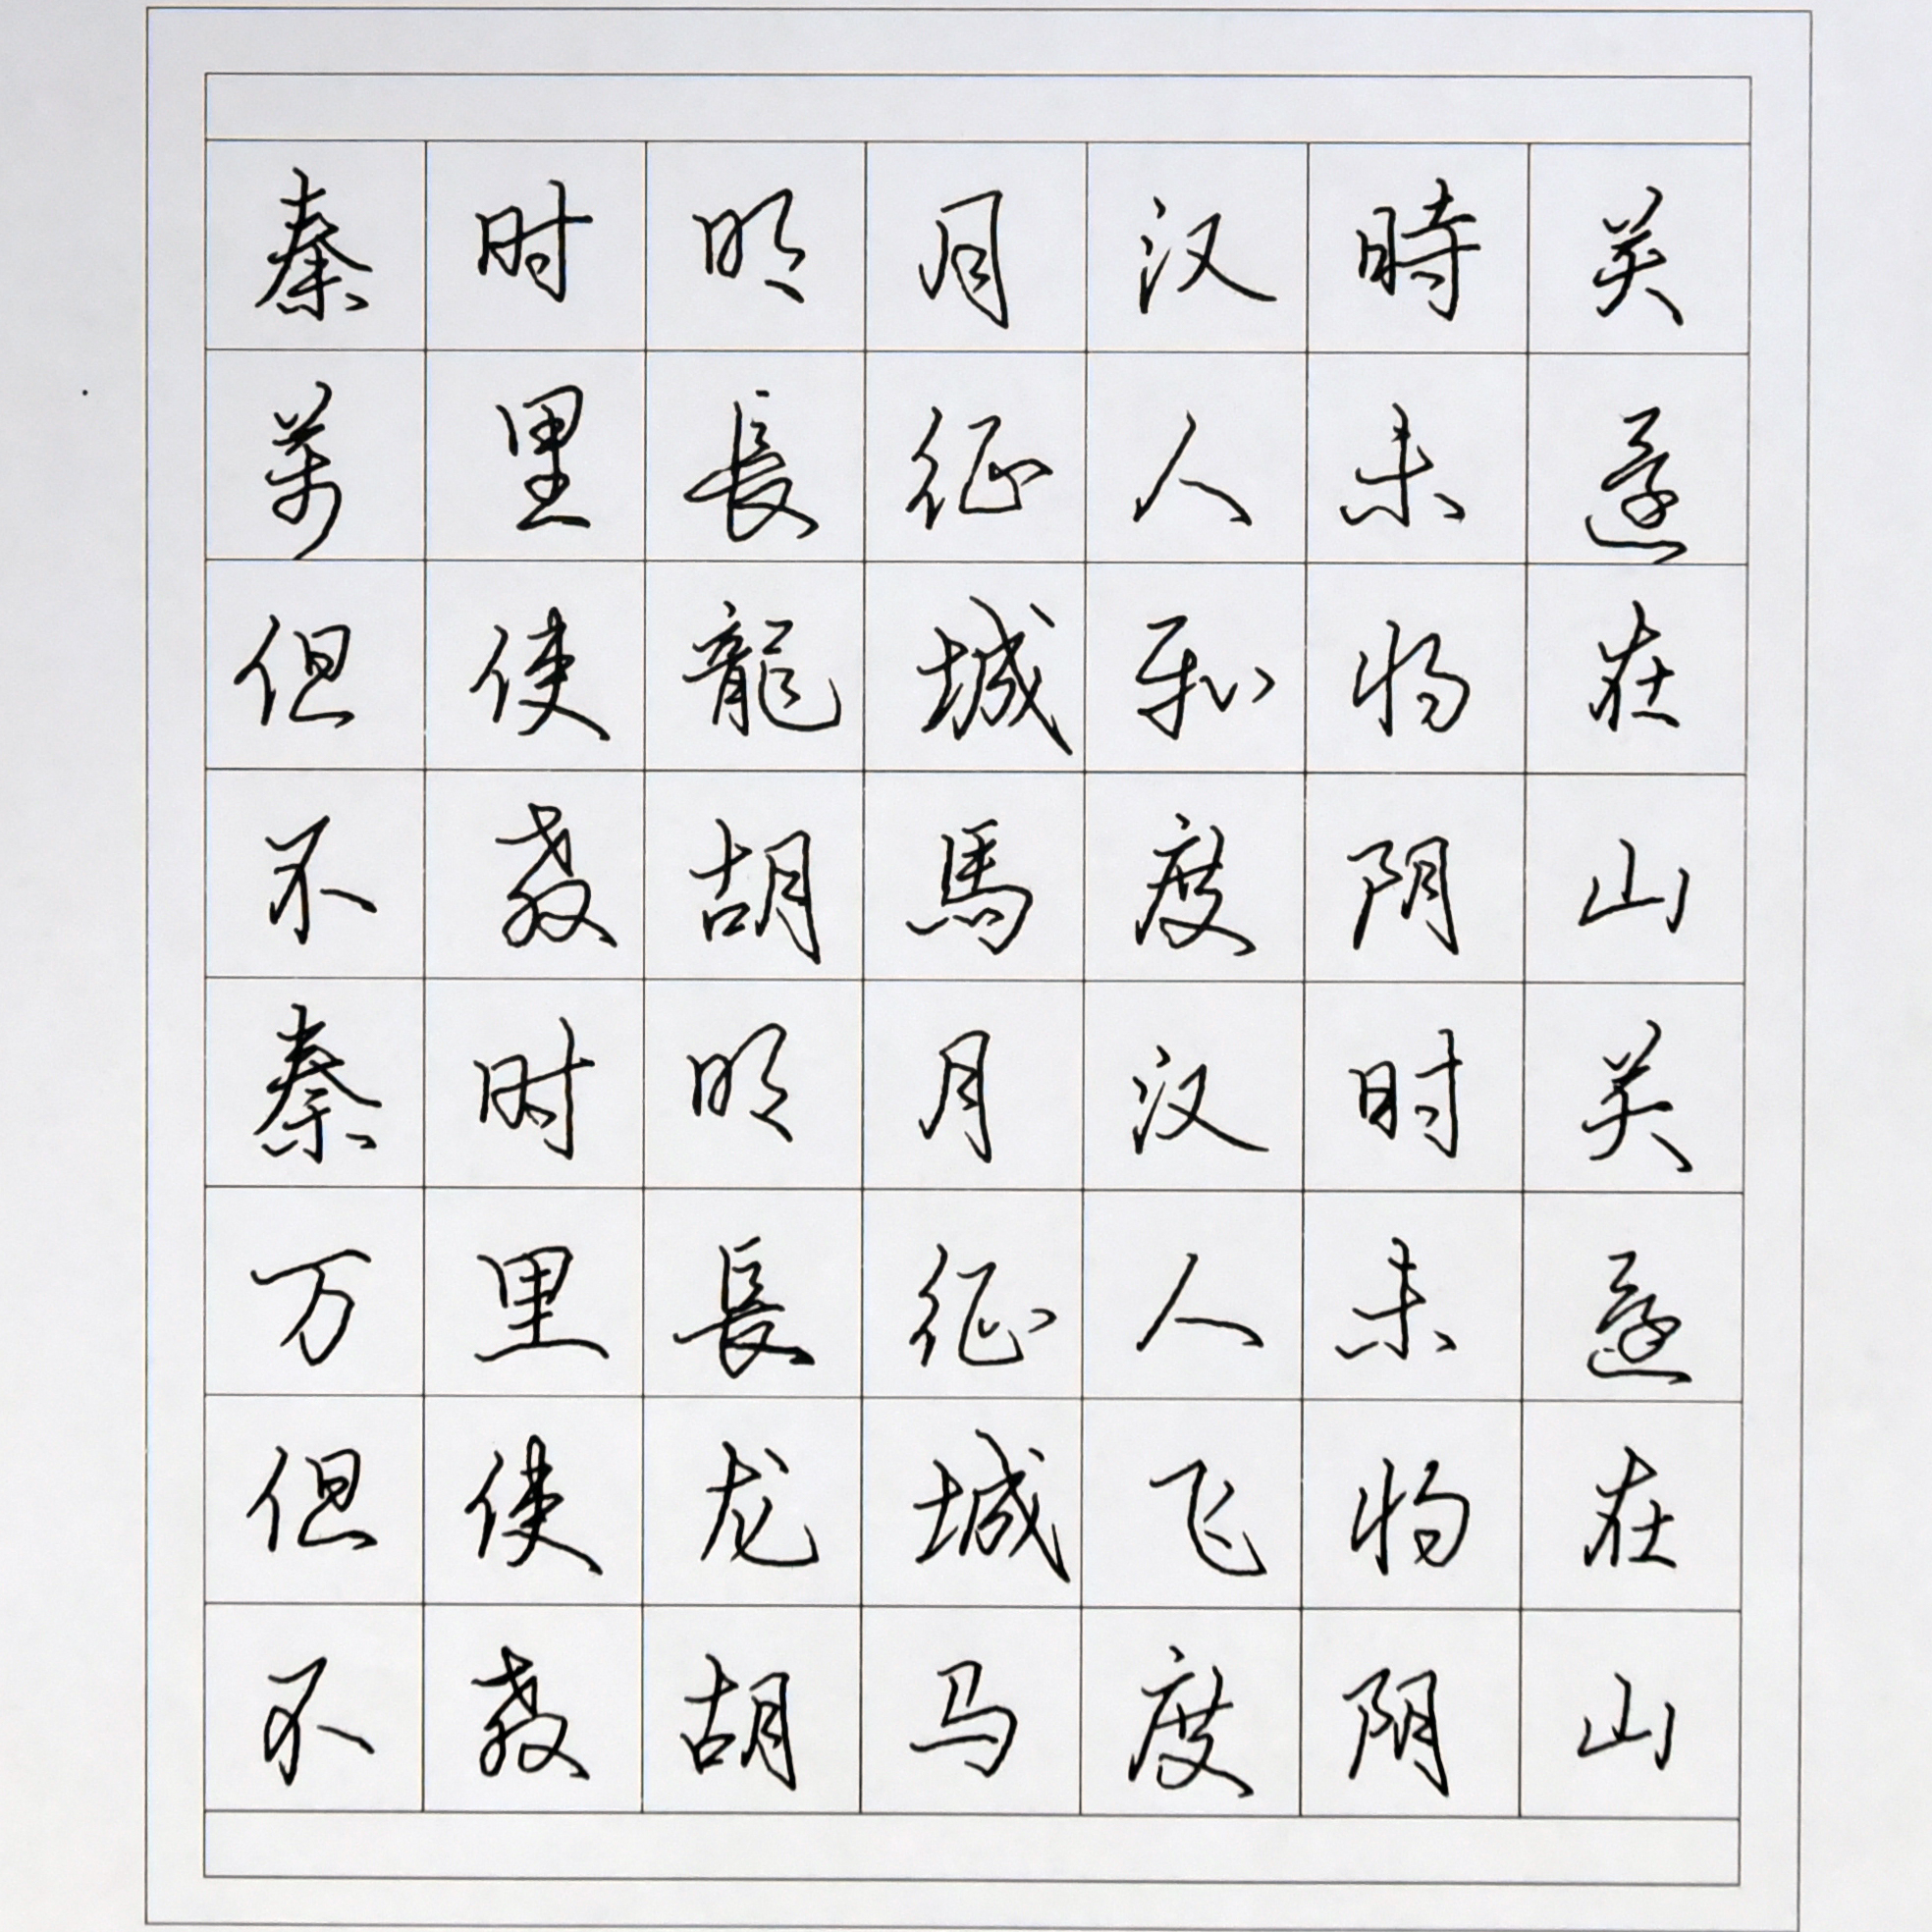 秦时明月汉時关
萬里長征人未還
但使龍城飛将在
不教胡馬度阴山
秦时明月汉时关
万里長征人未還
但使龙城飞将在
不教胡马度阴山